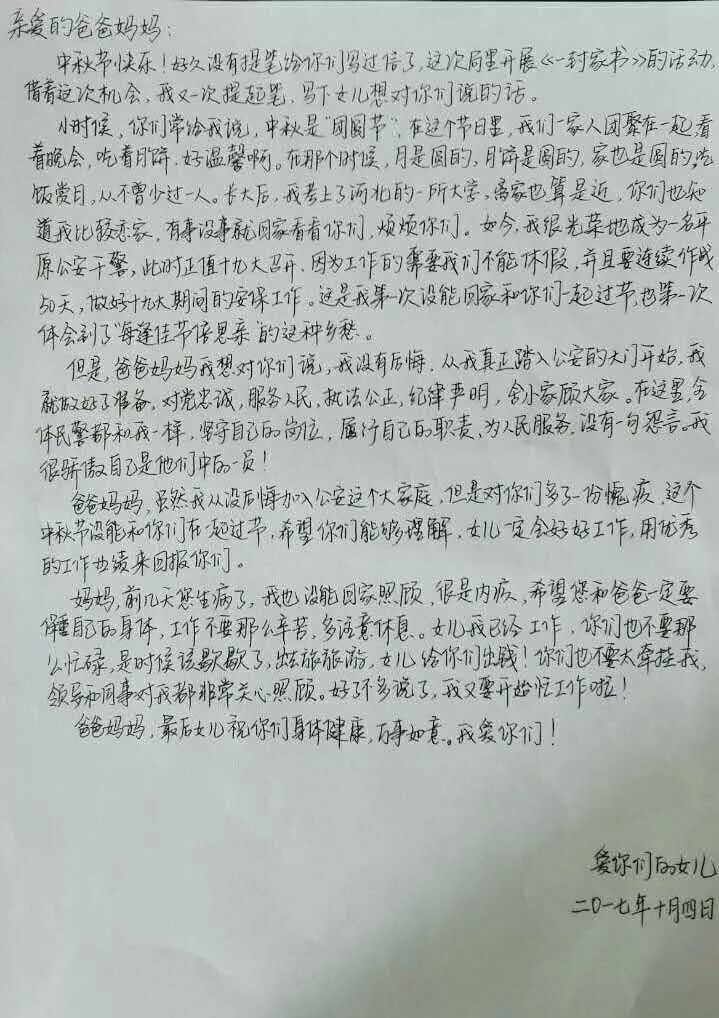 亲爱的爸爸妈妈：
中秋节快乐！好久没有提笔给你们写过信了，这次局里开展《一封家书》的活动，
借着这次机会，我又一次提起笔，写下女儿想对你们说的话。
小时候，你们常给我说，中秋是“团圆节”，在这个节日里，我们一家人团聚在一起看
着晚会，吃着月饼，好温馨啊。在那个时候，月是圆的，月饼是圆的，家也是圆的，吃
饭赏月，从不曾少过一人。长大后，我考上了河北的一所大学，离家也算是近，你们也知
道我比较恋家，有事没事就回家看看你们，烦烦你们。如今，我很光荣地成为一名平
原公安干警，此时正值十九大召开，因为工作的需要我们不能休假，并且要连续作战
50天，做好十九大期间的安保工作。这是我第一次没能回家和你们一起过节，也第一次
体会到了“每逢佳节倍思亲”的这种乡愁。
但是，爸爸妈妈我想对你们说，我没有后悔，从我真正踏入公安的大门开始，我
就做好了准备，对党忠诚，服务人民，执法公正，纪律严明，舍小家顾大家。在这里，全
体民警都和我一样，坚守自己的岗位，履行自己的职责，为人民服务，没有一句怨言。我
很骄傲自己是他们中的一员！
爸爸妈妈，虽然我从没后悔加入公安这个大家庭，但是对你们多了一份愧疚，这个
中秋节没能和你们在一起过节，希望你们能够理解，女儿一定会好好工作，用优秀
的工作业绩来回报你们。
妈妈，前几天您生病了，我也没能回家照顾，很是内疚，希望您和爸爸一定要
保重自己的身体，工作不要那么辛苦，多注意休息。女儿我已经工作，你们也不要那
么忙碌，是时候该歇歇了，出去旅旅游，女儿给你们出钱！你们也不要太牵挂我，
领导和同事对我都非常关心照顾。好了不多说了，我又要开始忙工作啦！
爸爸妈妈，最后女儿祝你们身体健康，万事如意。我爱你们！
爱你们的女儿
二〇一七年十月四日